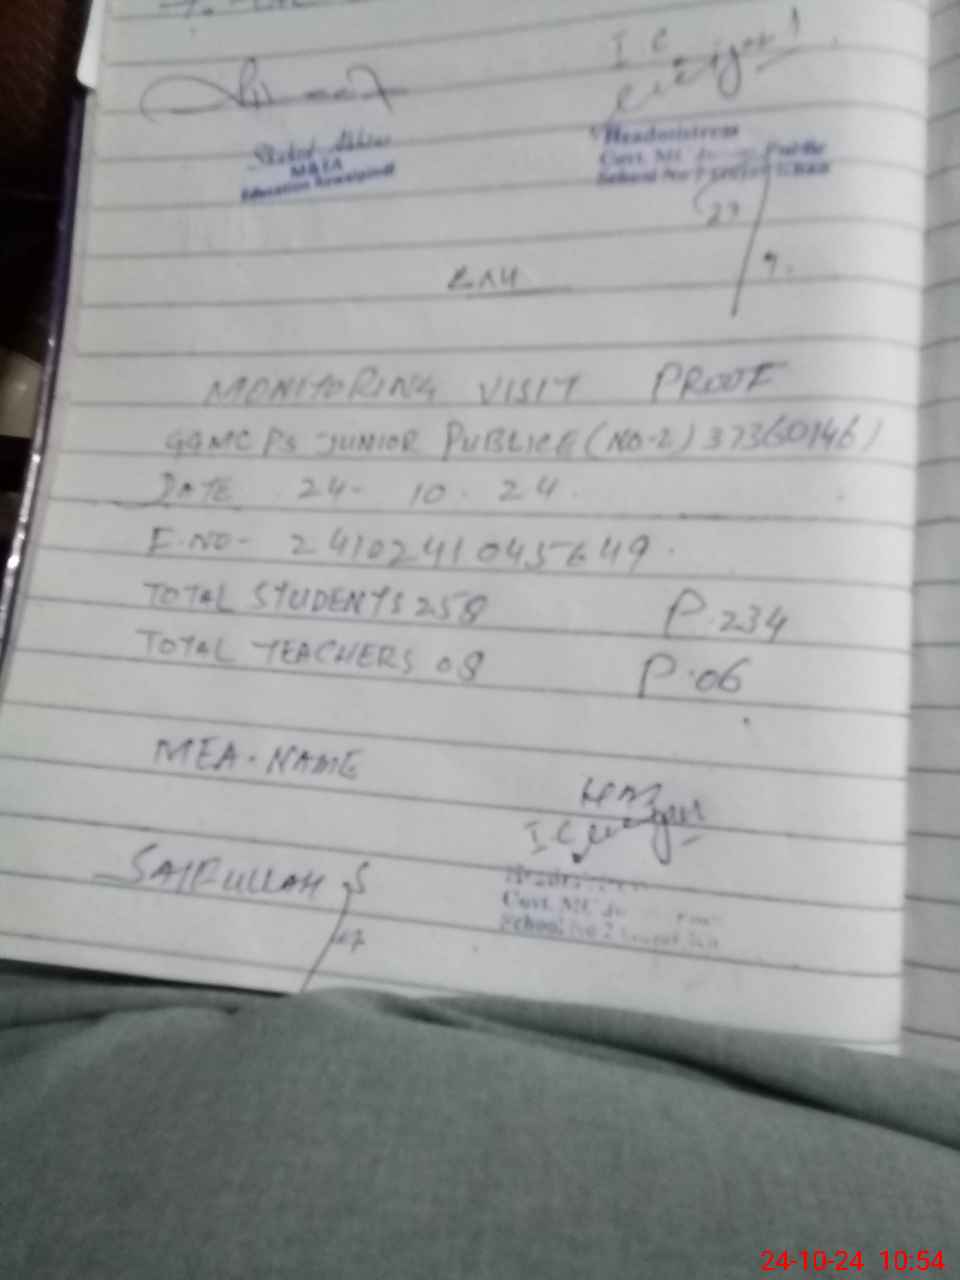 I C
Headmistress
Govt. MC Public
School No
Shahid Akhtar
MEA
Education Rawalpindi
23
9.
MONITORING VISIT PROOF
GGMC PS JUNIOR PUBLICE (NO-2) 37360146)
DATE 24- 10. 24.
E.NO- 2410241045649.
TOTAL STUDENTS 258 P.234
TOTAL TEACHERS 08 P.06
MEA. NAME
HM
I C
SAIFULLAH
Govt. MC
School No 2
24-10-24 10:54